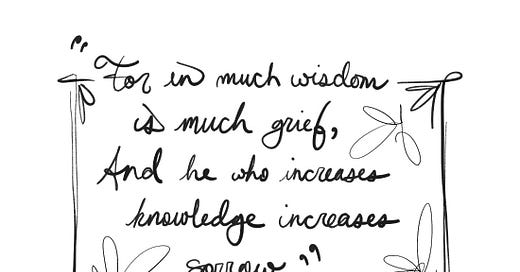 "For in much wisdom
is much grief,
And he who increases
knowledge increases
sorrow"